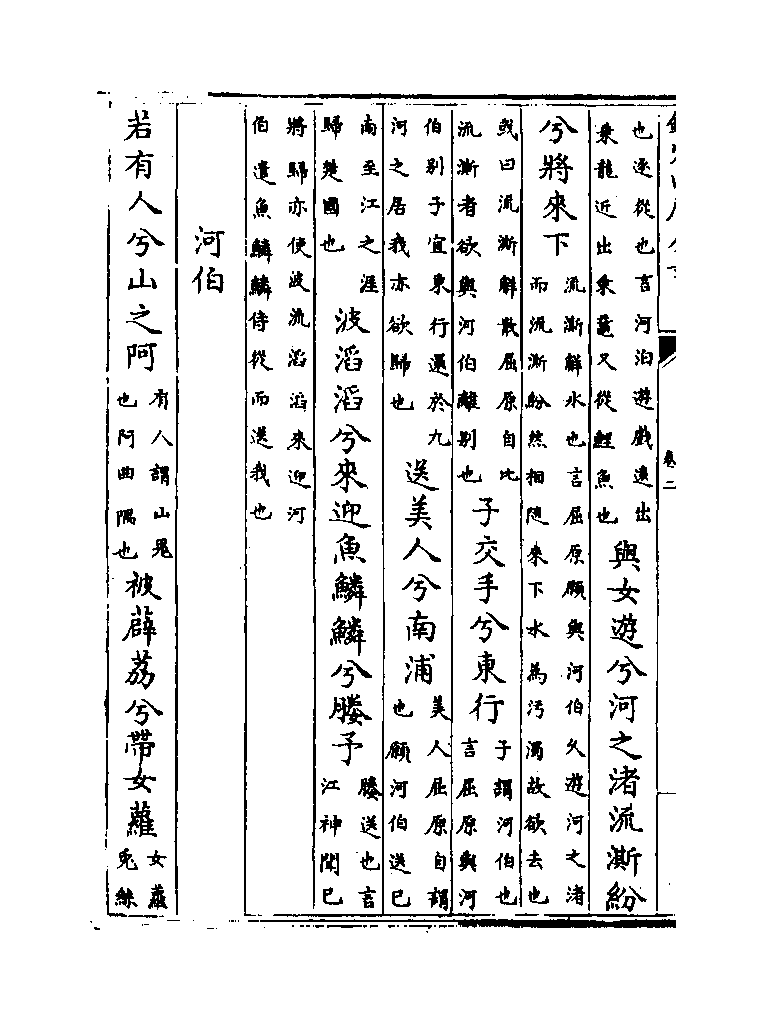 卷二
也逐從也言河泊遊戲遠出乗龍近出乗黿又從鯉魚也與女遊兮河之渚流澌紛
兮將來下流澌解氷也言屈原願與河伯久遊河之渚而流澌紛然相随來下水為汚濁故欲去也
或曰流澌解散屈原自比流澌者欲與河伯離别也子交手兮東行子謂河伯也言屈原與河
伯别子宜東行還於九河之居我亦欲歸也送美人兮南浦美人屈原自謂也願河伯送已
南至江之涯歸楚國也波滔滔兮來迎魚鱗鱗兮媵予媵送也言江神聞已
將歸亦使波流滔滔來迎河伯遣魚鱗鱗侍從而送我也
河伯
若有人兮山之阿有人謂山鬼也阿曲隅也被薜荔兮帶女蘿女蘿兎絲